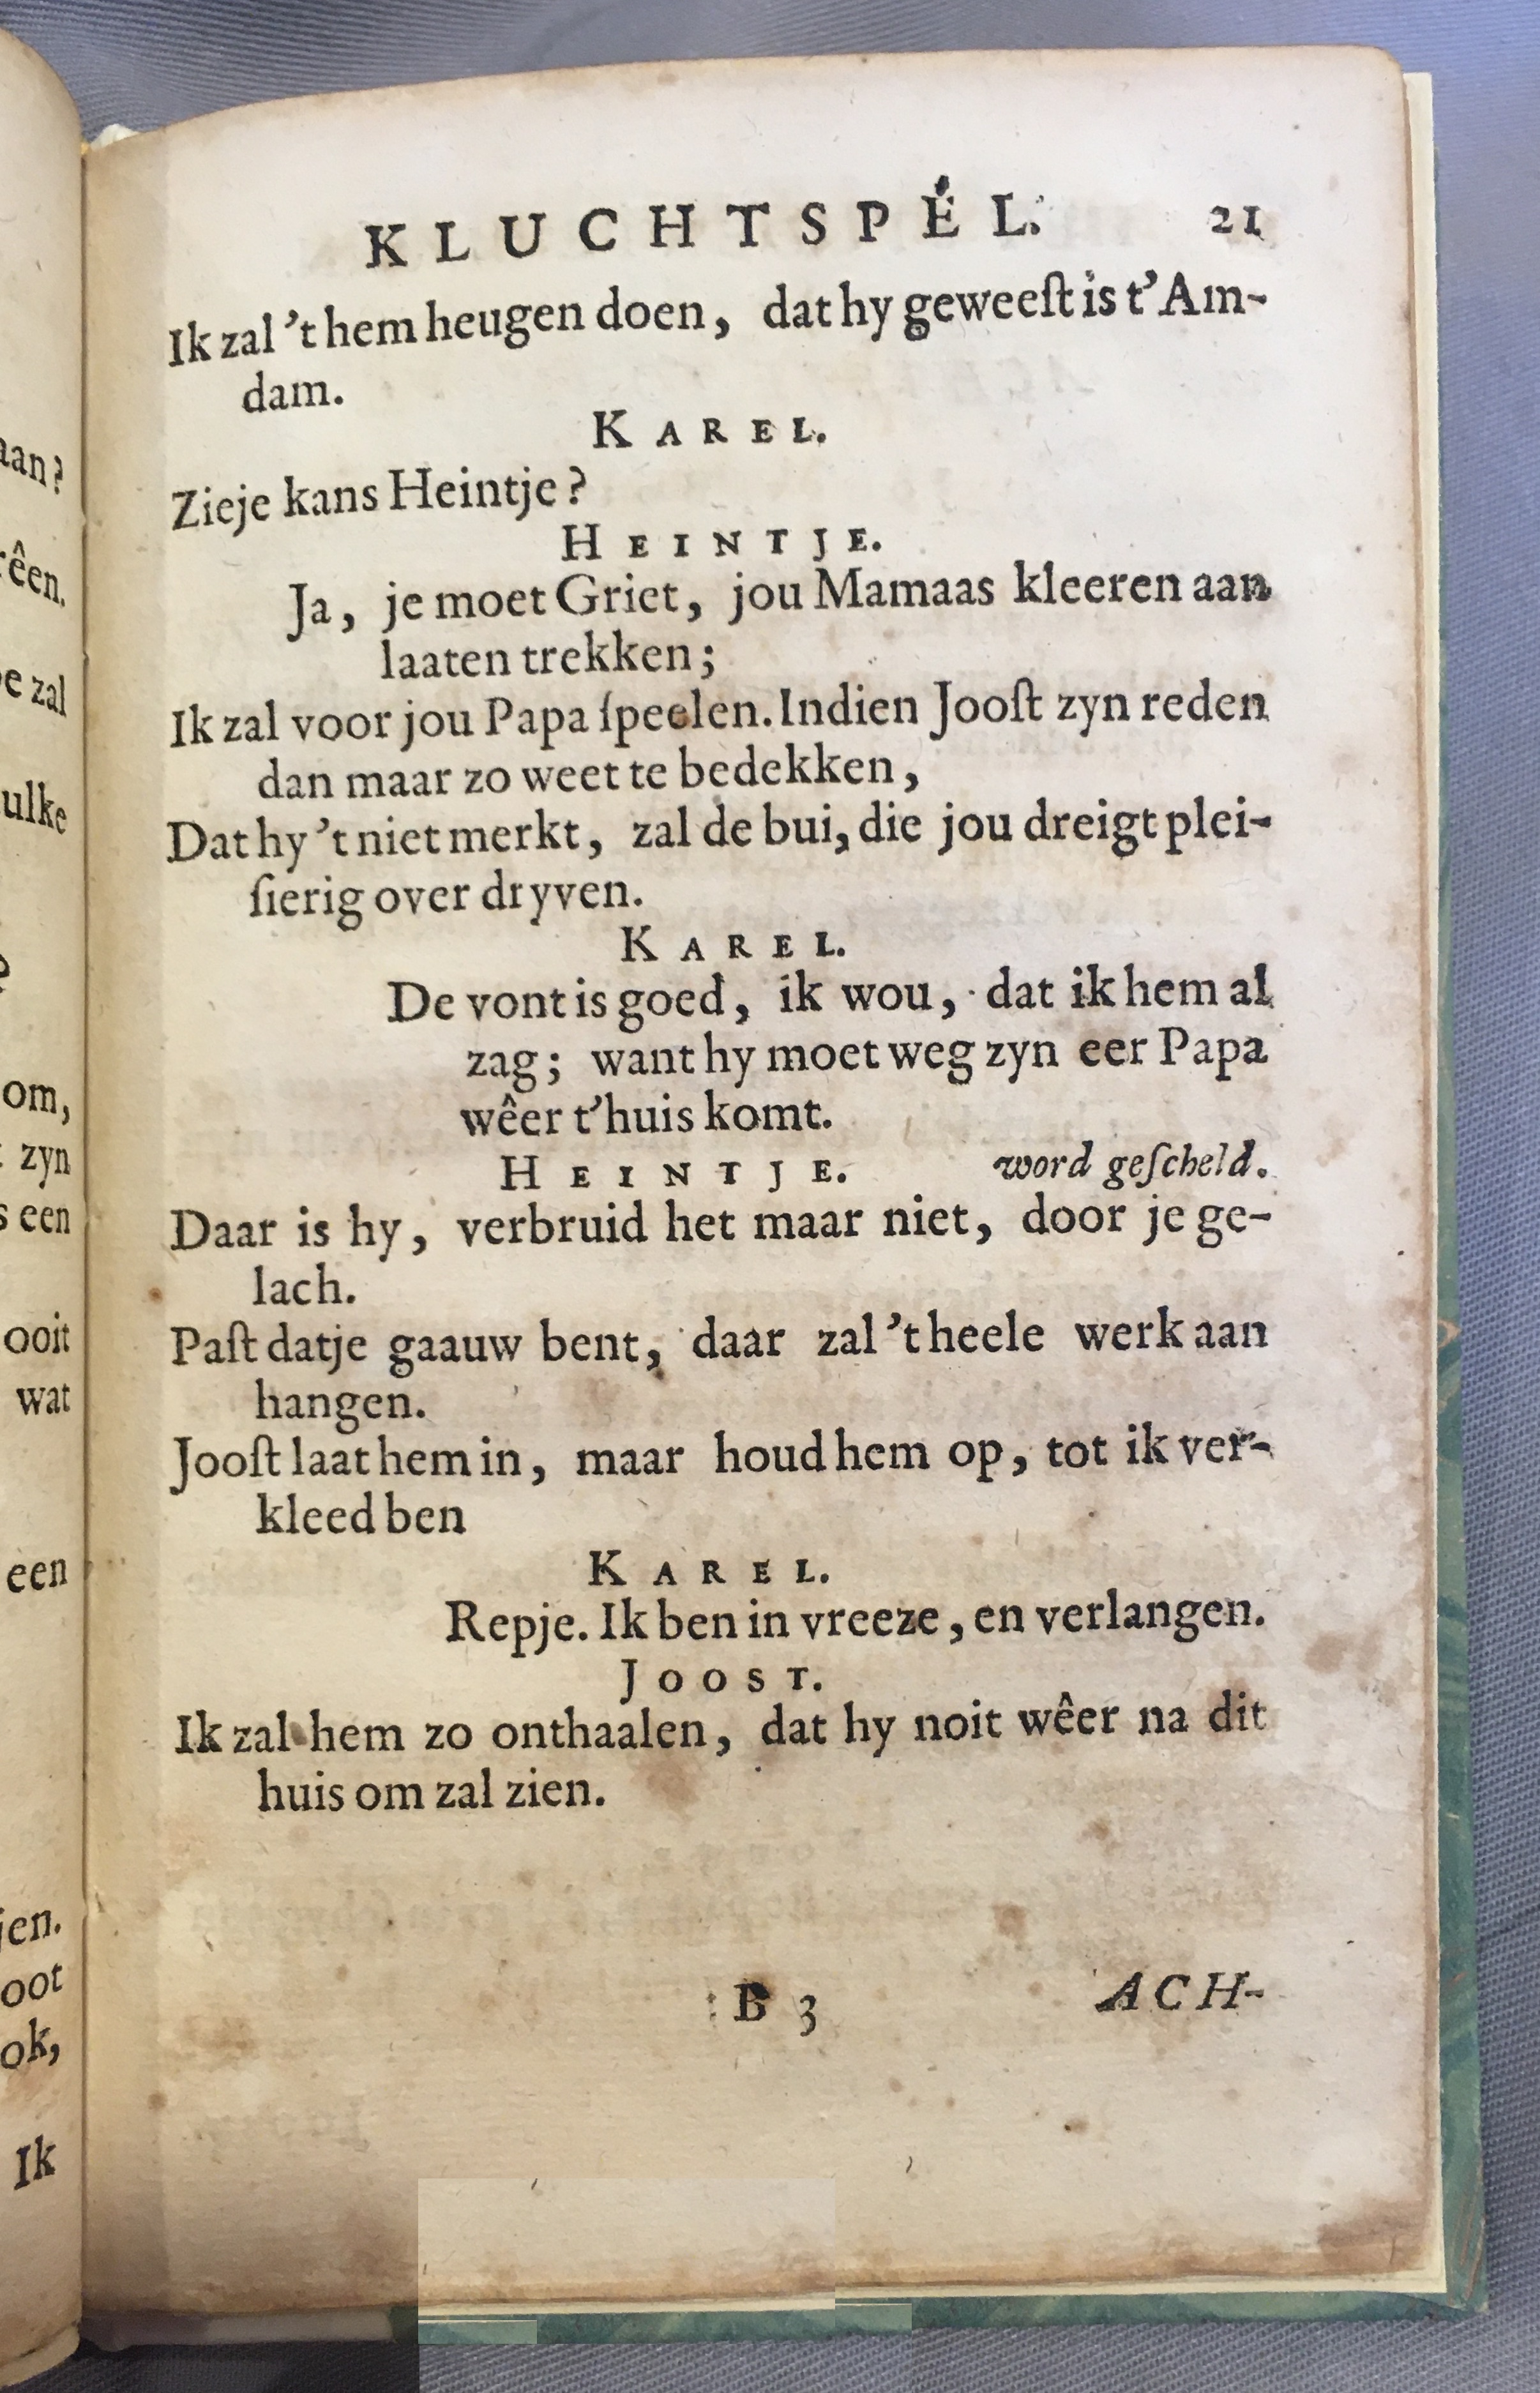 KLUCHTSPÉL. 21
Ik zal 't hem heugen doen, dat hy geweeſt is t'Am-
dam.
KAREL.
Zieje kans Heintje?
HEINTJE.
Ja, je moet Griet, jou Mamaas kleeren aan
laaten trekken;
Ik zal voor jou Papa ſpeelen. Indien Jooſt zyn reden
dan maar zo weet te bedekken,
Dat hy 't niet merkt, zal de bui, die jou dreigt plei-
ſierig over dryven.
KAREL.
De vont is goed, ik wou, dat ik hem al
zag; want hy moet weg zyn eer Papa
wêer t'huis komt.
HEINTJE. word geſcheld.
Daar is hy, verbruid het maar niet, door je ge-
lach.
Paſt datje gaauw bent, daar zal 't heele werk aan
hangen.
Jooſt laat hem in, maar houd hem op, tot ik ver-
kleed ben
KAREL.
Repje. Ik ben in vreeze, en verlangen.
JOOST.
Ik zal hem zo onthaalen, dat hy noit wêer na dit
huis om zal zien.
B 3 ACH-
zal
ulke
om,
zyn
een
ooit
wat
een
Ik